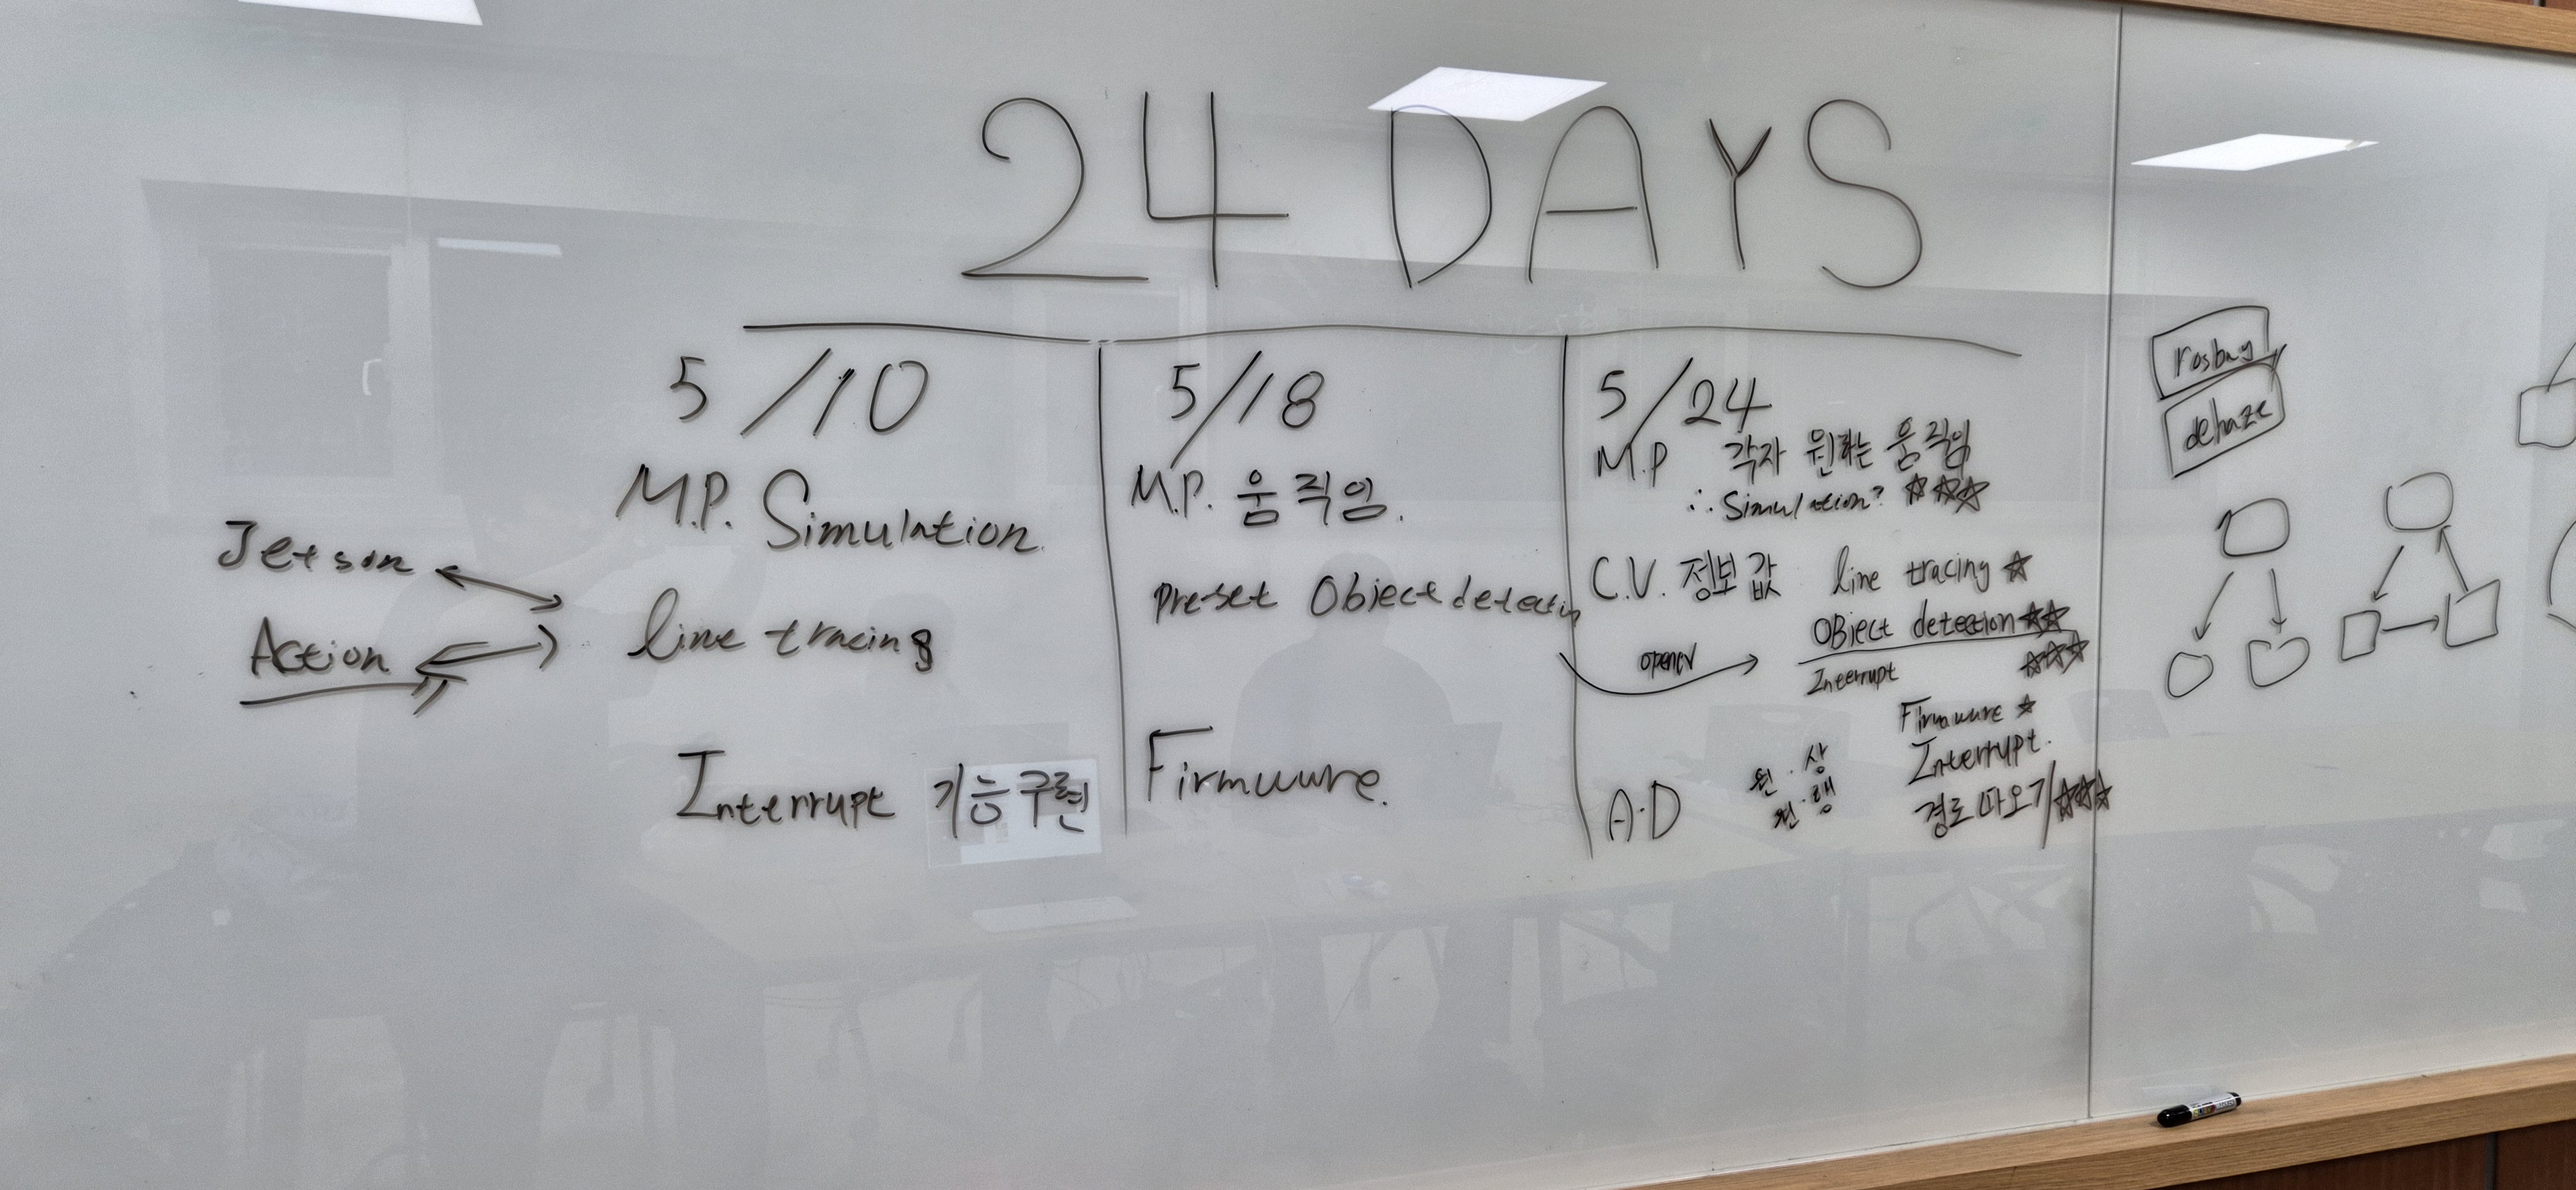 24 DAYS
5/10
M.P. Simulation
Jetson
Action
line tracing
Interrupt 기능구현
5/18
M.P. 움직임.
Pre-set Object detection
Firmwure.
5/24
M.P 각자 원하는 움직임
∴ Simulation? ☆☆☆
C.V. 정보값 line tracing ☆
OBject detection ☆☆
opencv
Interrupt ☆☆☆
Firmwure ☆
A.D 원.상 Interrupt.
원.행 경로 따오기/☆☆☆
rosbag
dehaze